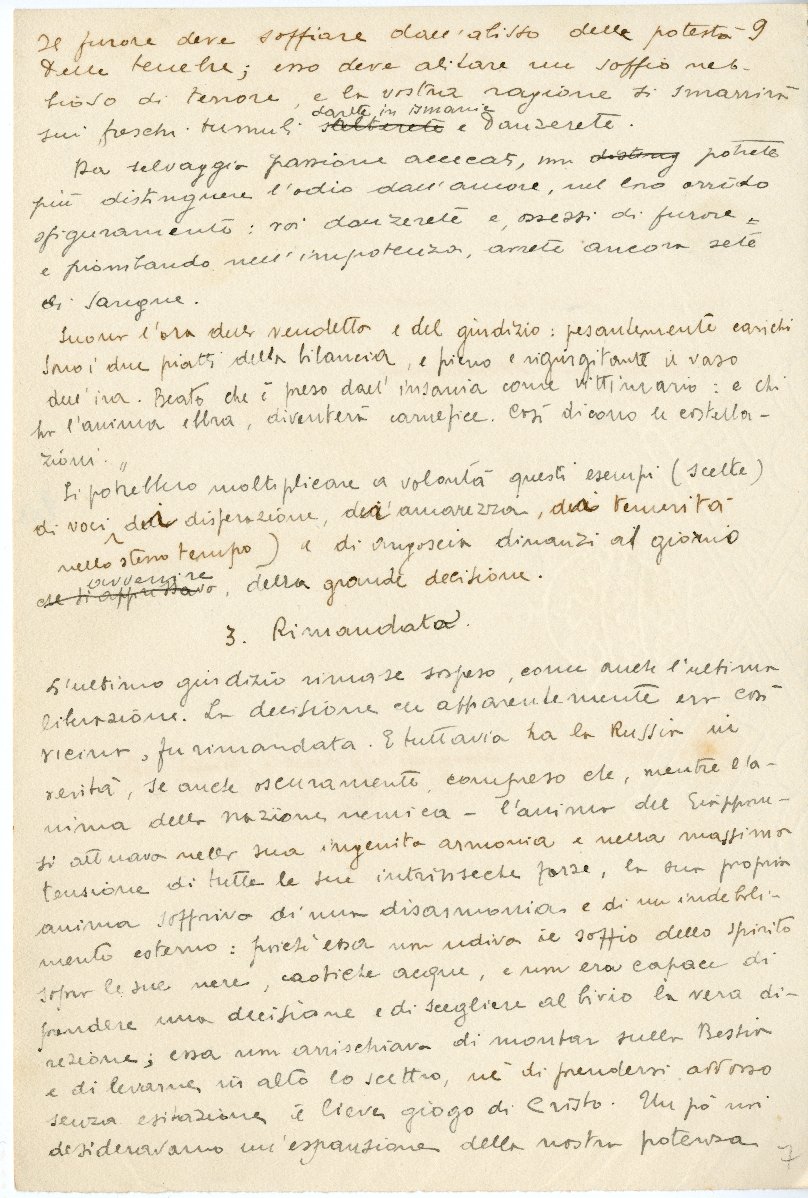 Il furore deve soffiare dall'abisso delle potestà 9
delle tenebre; esso deve alitare un soffio neb-
bioso di terrore, e la vostra ragione si smarrirà
darete in ismanie
sui freschi tumuli salterete e danzerete.
Da selvaggia passione accecati, non disting potrete
più distinguere l'odio dall'amore, nel loro orrido
sfiguramento: voi danzerete e, ossessi di furore
e piombando nell'impotenza, avrete ancora sete
di sangue.
Suona l'ora della vendetta e del giudizio: pesantemente carichi
sono i due piatti della bilancia, e pieno e rigurgitante il vaso
dell'ira. Beato chi è preso dall'insania come vittimario: e chi
ha l'anima ebbra, diventerà carnefice. Così dicono le costella-
zioni."
Si potrebbero moltiplicare a volontà questi esempi (scelte)
di voci di disperazione, di amarezza, di temerità
nello stesso tempo) e di angoscia dinanzi al giorno
avvenire
che si appressava, della grande decisione.
3. Rimandata.
L'ultimo giudizio rimase sospeso, come anche l'ultima
liberazione. La decisione che apparentemente era così
vicina, fu rimandata. E tuttavia ha la Russia in
verità, se anche oscuramente, compreso che, mentre l'a-
nima della nazione nemica – l'anima del Giappone –
si attuava nella sua ingenita armonia e nella massima
tensione di tutte le sue intrinseche forze, la sua propria
anima soffriva di una disarmonia e di un indeboli-
mento esterno: poichè essa non udiva il soffio dello spirito
sopra le sue nere, caotiche acque, e non era capace di
prendere una decisione e di scegliere al bivio la vera di-
rezione; essa non arrischiava di montar sulla Bestia
e di levarne in alto lo scettro, nè di prendersi addosso
senza esitazione il lieve giogo di Cristo. Un pò noi
desideravamo un'espansione della nostra potenza
7